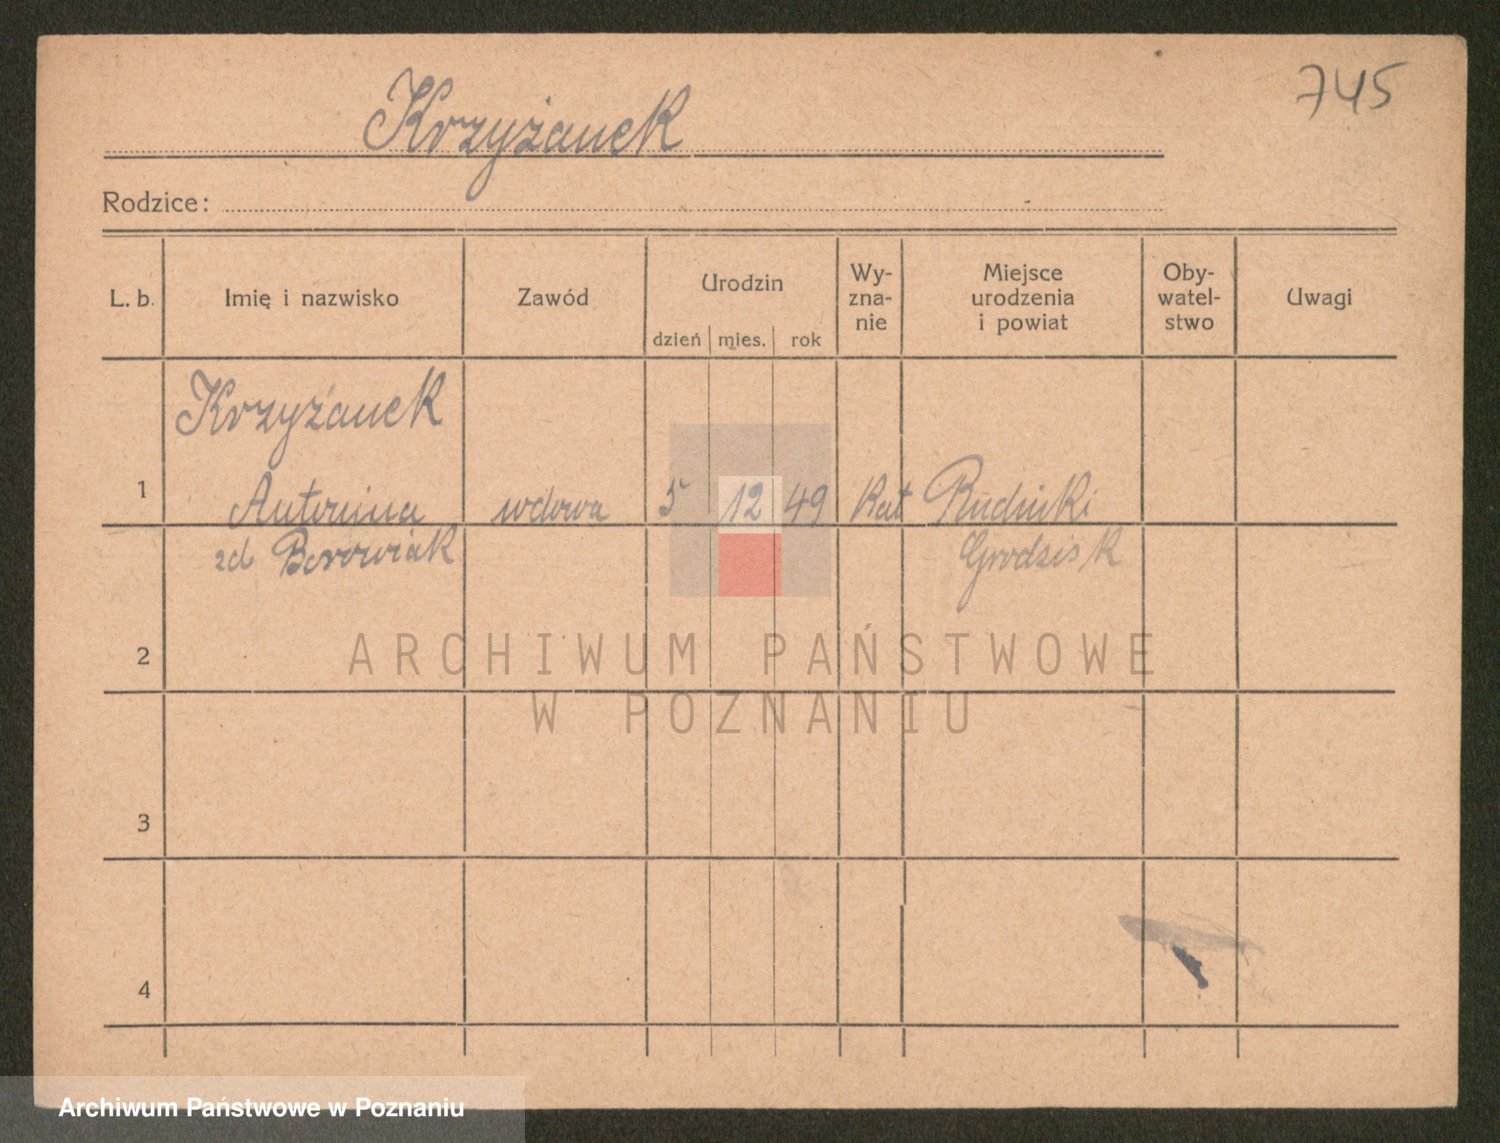 745
Krzyżanek
Rodzice:
L. b. Imię i nazwisko Zawód Urodzin dzień mies. rok Wy-zna-nie Miejsce urodzenia i powiat Oby-watel-stwo Uwagi
Krzyżanek
1 Antonina wdowa 5 12 49 Kat Rudniki
zd Borowiak Grodzisk
2
ARCHIWUM PAŃSTWOWE
W POZNANIU
3
4
Archiwum Państwowe w Poznaniu